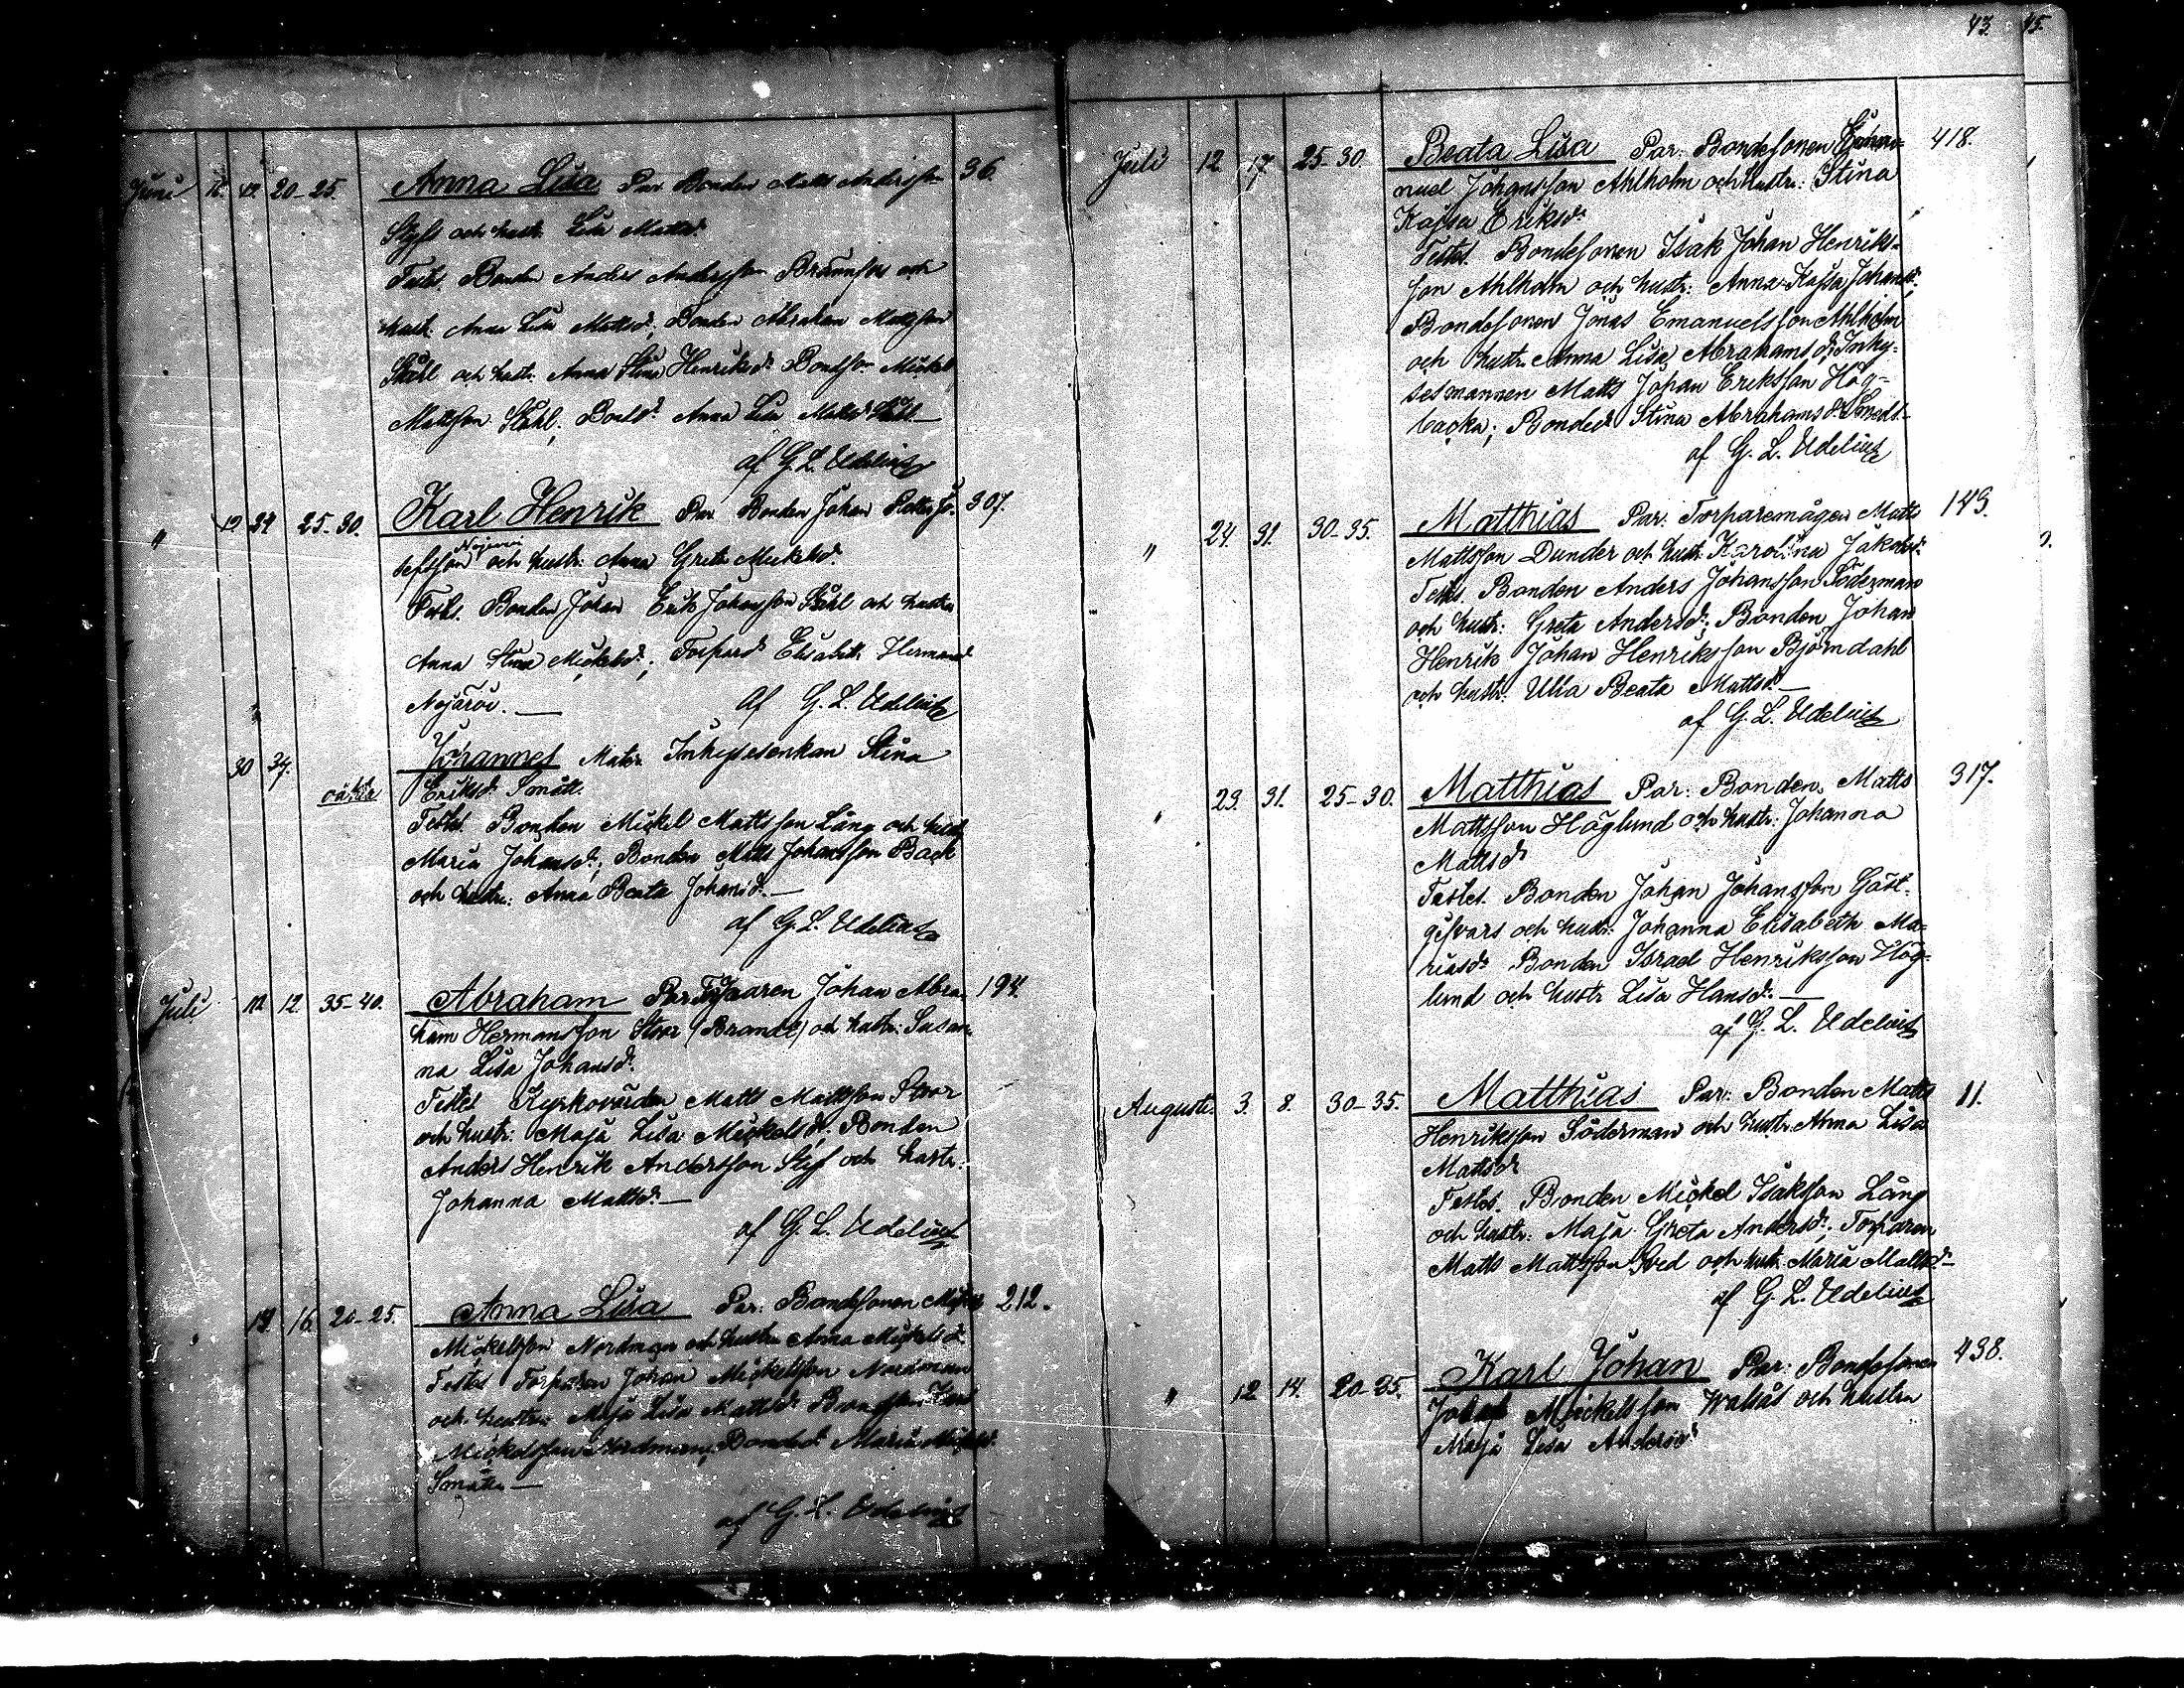 Juni 12. 20-25. Anna Lisa Par. Bonden Matts Andersson 36.
Styfs och hustr. Lisa Mattsd.
Testes. Bonden Anders Andersson Brännfors och
hustr. Anna Lisa Mattsd. Bonden Abraham Mattsson
Ståhl och hustr. Anna Stina Henriksd. Bondson Mickel
Mattsson Ståhl; Anna Lisa Mattsd. Ståhl
af G. L. Udelius
" 24 25-30. Karl Henrik Par Bonden Johan 307.
sefsson och hustr. Anna Greta Mickelsd.
Testes. Bonden Johan Erik Johansson Ståhl och hustru
Anna Stina Mickelsd.; Torpard. Elisabeth Hermansd.
Nöjärvi.
Af G. L. Udelius
30 Johannes Mater. Inhysesenkan Stina
oäkta Eriksd. Smått.
Testes. Bonden Mickel Mattsson Lång och hustr.
Maria Johansd; Bonden Matts Johansson Back
och hustru: Anna Beata Johansd.
af G. L. Udelius
Juli 12 35-40. Abraham Par. Torparen Johan Abra- 194.
ham Hermansson Stoor (Brandt) och hustr: Susan-
na Lisa Johansd.
Testes Kyrkovärden Matts Mattsson Stoor
och hustr: Maja Lisa Mickelsd: Bonden
Anders Henrik Andersson Styf och hustr:
Johanna Mattsd.
af G. L. Udelius
" 13. 16. 20-25. Anna Lisa Par: Bondesonen Mickel 212.
Mickelsson Nordman och hustru Anna Mickelsd.
Testes Torparen Johan Mickelsson Nordman
och hustru Maja Lisa Mattsd.
Mickelsson Nordman; Bonded. Maria Mickelsd.
Smått
af G. L. Udelius
43. 45.
Juli 12. 17. 25-30 Beata Lisa Par: Bondesonen Ema- 418.
nuel Johansson Ahlholm och hustr: Stina
Kajsa Eriksd.
Testes. Bondesonen Isak Johan Henriks-
son Ahlholm och hustr: Anna Kajsa Johansd;
Bondesonen Jonas Emanuelsson Ahlholm
och hustr. Anna Lisa Abrahamsd; Inhy-
sesmannen Matts Johan Eriksson Hög-
backa; Bonded. Stina Abrahamsd. Smeds-
af G. L. Udelius
" 24. 31. 30-35. Matthias Par: Torparemågen Matts 143.
Mattsson Dunder och hustr. Karolina Jakobsd.
Testes. Bonden Anders Johansson Söderman
och hustr: Greta Andersd; Bonden Johan
Henrik Johan Henriksson Björndahl
och hustr. Ulla Beata Mattsd.
af G. L. Udelius
" 23. 31. 25-30. Matthias Par: Bonden Matts 317.
Mattsson Höglund och hustr: Johanna
Mattsd.
Testes. Bonden Johan Johansson Gäst-
gifvars och hustr: Johanna Elisabeth Ma-
riasd. Bonden Israel Henriksson Hög-
lund och hustr Lisa Hansd.
af G. L. Udelius
Augusti. 3. 8. 30-35. Matthias Par: Bonden Matts 11.
Henriksson Söderman och hustr. Anna Lisa
Mattsd.
Testes. Bonden Mickel Isaksson Lång
och hustr: Maja Greta Andersd; Torparen
Matts Mattsson Sved och hustr. Maria Mattsd.
af G. L. Udelius
" 12 14. 20-25. Karl Johan Par: Bondesonen 438.
Johan Mickelsson Walsås och hustru
Maja Lisa Andersd.